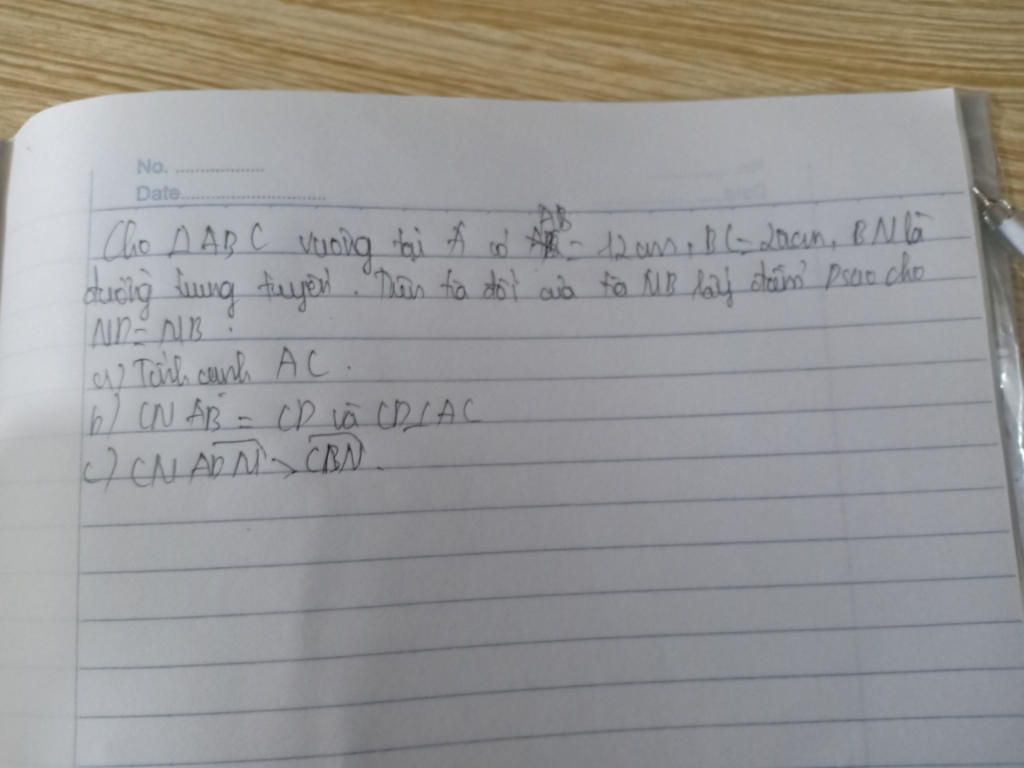 No. ..................
Date..............................
Cho Δ ABC vuông tại A có AB = 12cm, BC = 20cm, BN là
đường trung tuyến. Trên tia đối của tia NB lấy điểm D sao cho
ND = NB.
a) Tính cạnh AC.
b) CN AB = CD và CD⊥AC
c) CN ADN > CBN.